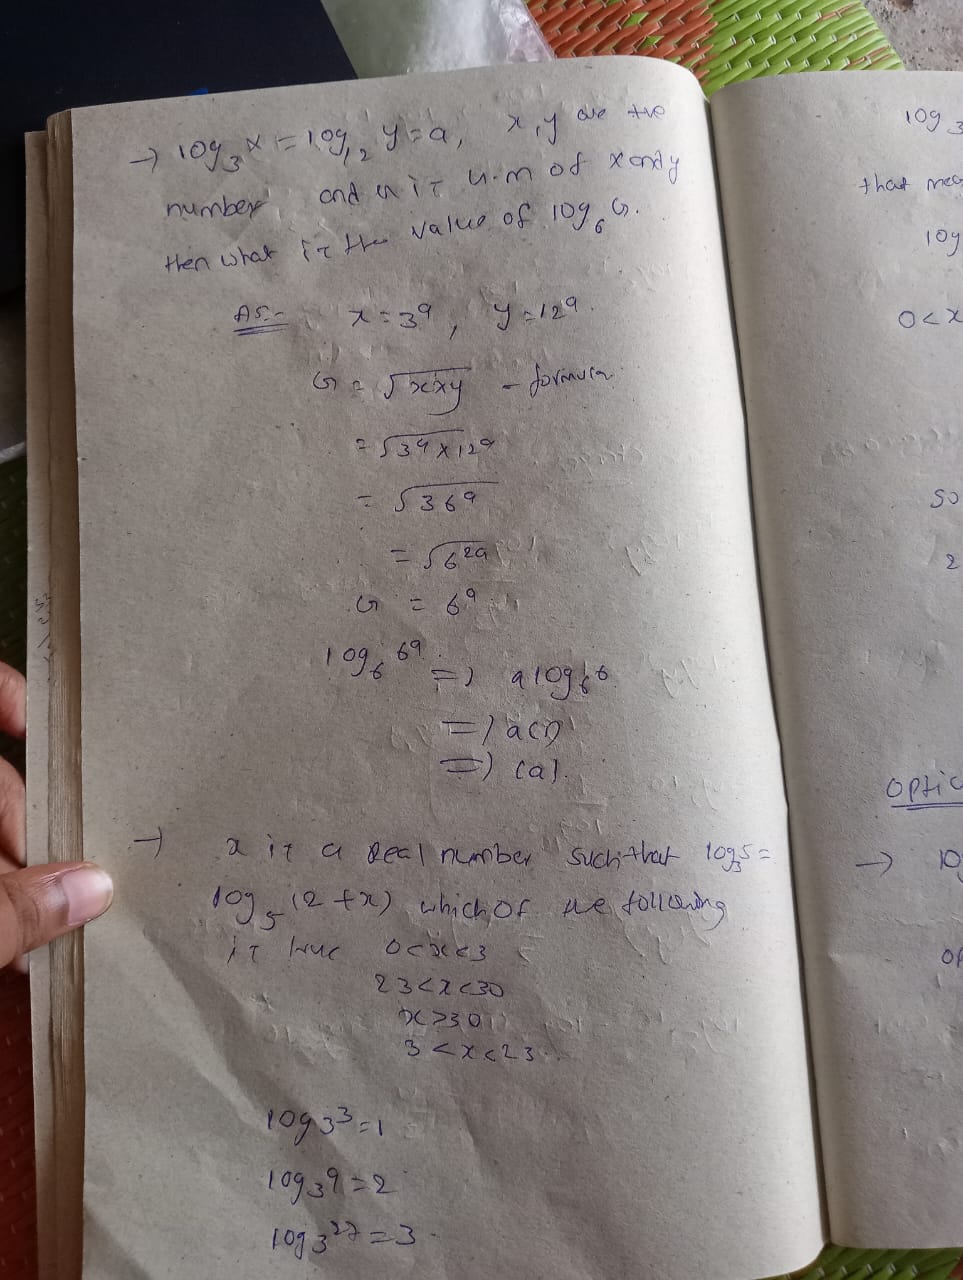 → log₃ x = log₁₂ y = a, x, y are +ve
number and G is G.M of x and y
then what is the value of log₆ G.
AS:- x = 3ᵃ, y = 12ᵃ.
G = √x×y - formula
= √3ᵃ × 12ᵃ
= √36ᵃ
= √6²ᵃ
G = 6ᵃ.
log₆ 6ᵃ. => a log₆ 6
=> a(1)
=> (a).
→ x is a Real number such that log₃5 =
log₅ (2+x) which of the following
is true 0<x<3
23<x<30
x>30
3<x<23.
log₃ 3 = 1
log₃ 9 = 2
log₃ 27 = 3.
log 3
that mea
log
0<x
so
2
Optio
→ log
op